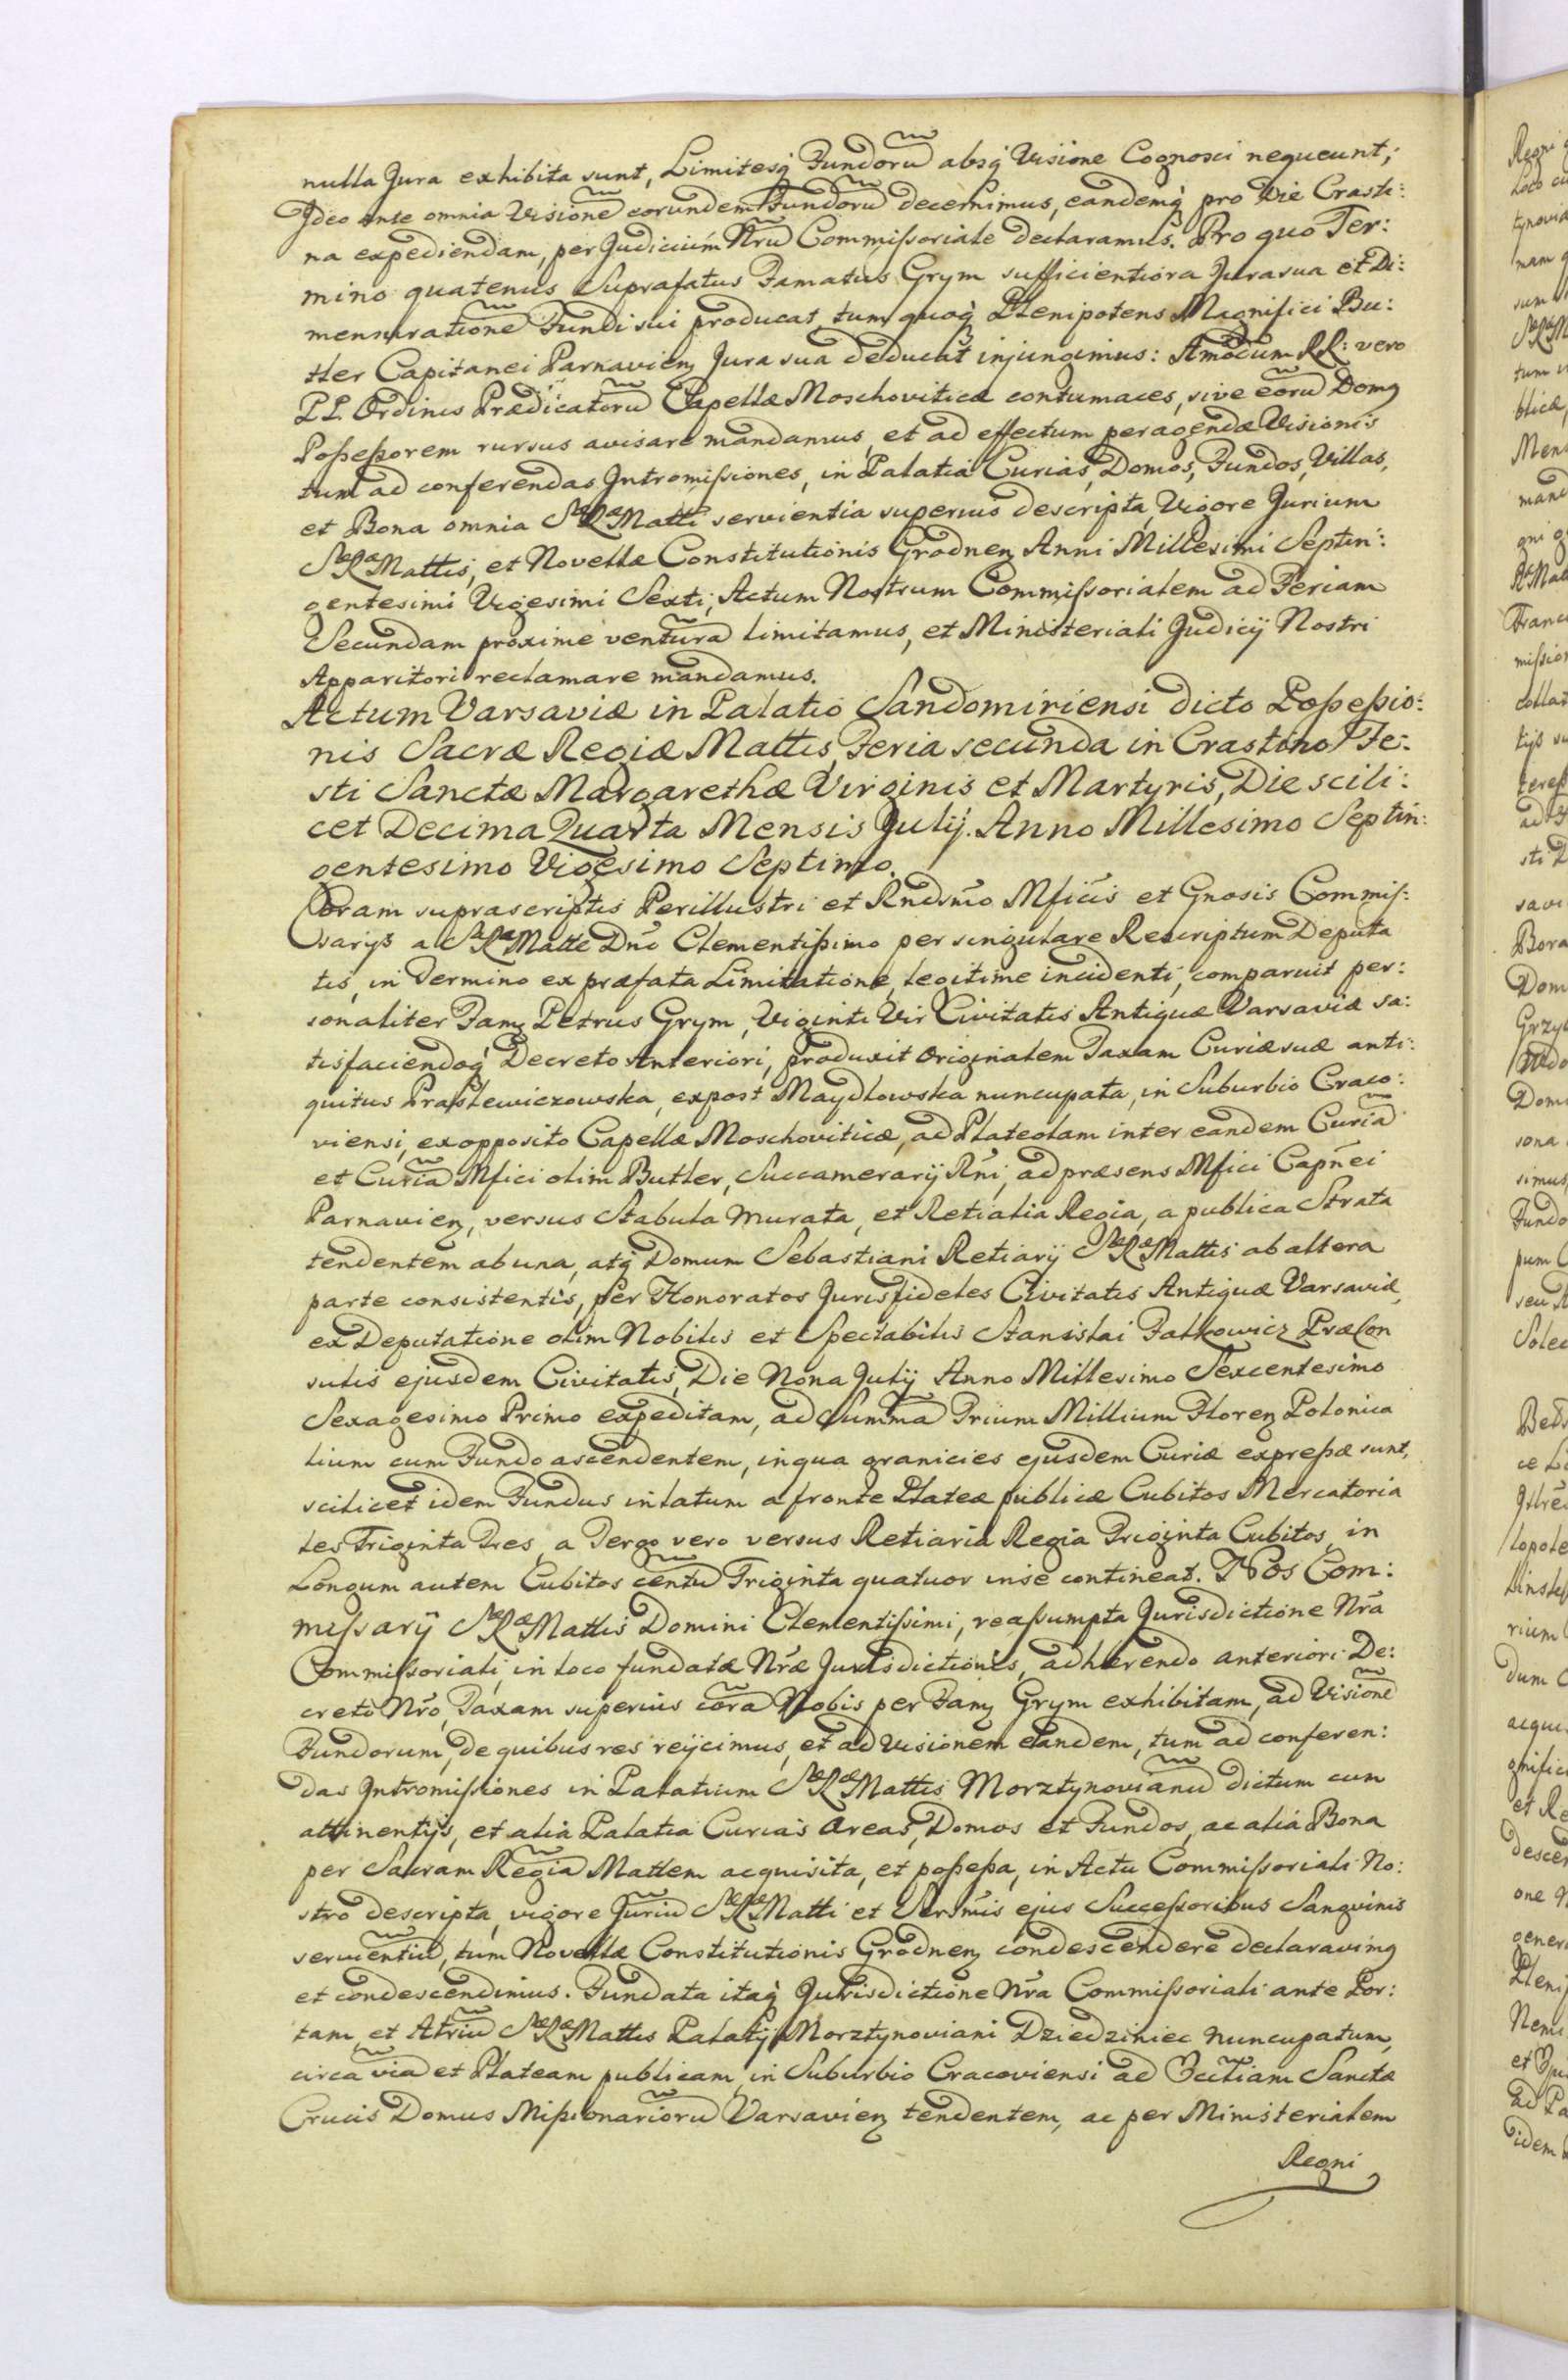 nulla Jura exhibita sunt, Limitesq́ Fundorũ absq́ Visione Cognosci nequeunt;
Ideo ante omnia Visionẽ eorundem Fundorũ decernimus, eandemq́ pro Die Crasti:
na expediendam, per Judicium Nr̃ũ Commissoriale declaramus. Pro quo Ter:
mino quatenus Suprafatus Famatus Grym sufficientiora Jura sua et Di:
mensurationẽ Fundi sui producat, tum quoq́ Plenipotens Magnifici Bu:
tler Capitanei Parnavien̄ Jura sua deducat injungimus: Amodum RR: vero
PP. Ordinis Prædicatorũ Capellæ Moschoviticæ contumaces, sive eorũ Domꝰ
Possessorem rursus avisare mandamus, et ad effectum peragendæ Visionis
tum ad conferendas Intromissiones, in Palatia Curias, Domos, Fundos, Villas,
et Bona omnia Sæ Ræ Matti servientia superius descripta, Vigore Jurium
Sæ Ræ Mattis, et Novellæ Constitutionis Grodnen̄ Anni Millesimi Septin:
gentesimi Vigesimi Sexti, Actum Nostrum Commissorialem ad Feriam
Secundam proxime venturã limitamus, et Ministeriali Judicij Nostri
Apparitori reclamare mandamus.
Actum Varsaviæ in Palatio Sandomiriensi dicto Possessio:
nis Sacræ Regiæ Mattis, Feria secunda in Crastino Fe:
sti Sanctæ Margarethæ Virginis et Martyris, Die scili:
cet Decima Quarta Mensis Julij. Anno Millesimo Septin:
gentesimo Vigesimo Septimo.
Coram suprascriptis Perillustri et Rndsm̃o Mficis et Gnosis Commis:
sarijs a Sa Ra Matte Dnõ Clementissimo per singulare Rescriptum Deputa
tis, in Termino ex præfata Limitatione, legitime incidenti, comparuit per:
sonaliter Fam̄ Petrus Grym, Viginti Vir Civitatis Antiquæ Varsaviæ sa:
tisfaciendoq́ Decreto Anteriori, produxit Originalem Taxam Curiæ suæ anti:
quitus Prasslewiczowska, expost Maydlowska nuncupata, in Suburbio Craco:
viensi, ex opposito Capellæ Moschoviticæ, ad Plateolam inter eandem Curiã
et Curiã Mfici olim Butler, Succamerarij Rñi, ad præsens Mfici Capñei
Parnavien̄, versus Stabula Murata, et Retialia Regia, a publica Strata
tendentem ab una, atq́ Domum Sebastiani Retiarij Sæ Ræ Mattis ab altera
parte consistentis, per Honoratos Jurisfideles Civitatis Antiquæ Varsaviæ,
ex Deputatione olim Nobilis et Spectabilis Stanislai Falkowicz Præcon
sulis ejusdem Civitatis, Die Nona Julij Anno Millesimo Sexcentesimo
Sexagesimo Primo expeditam, ad Summã Trium Millium Floren̄ Polonica
lium cum Fundo ascendentem, in qua granicies ejusdem Curiæ expressæ sunt,
scilicet idem Fundus in latum a fronte Plateæ publicæ Cubitos Mercatoria
les Triginta Tres, a Tergo vero versus Retiaria Regia Triginta Cubitos, in
Longum autem Cubitos centũ Triginta quatuor in se contineat. Nos Com:
missarij Sæ Ræ Mattis Domini Clementissimi, reassumpta Jurisdictione Nrã
Commissoriali, in loco fundatæ Nræ Jurisdictionis, adhærendo anteriori De:
creto Nrõ, Taxam superius corã Nobis per Fam̄ Grym exhibitam, ad Visionẽ
Fundorum, de quibus res reijcimus, et ad Visionem eandem, tum ad conferen:
das Intromissiones in Palatium Sæ Ræ Mattis Morztynovianũ dictum cum
attinentijs, et alia Palatia Curias Areas, Domos et Fundos, ac alia Bona
per Sacram Regiã Mattem acquisita, et possessa, in Actu Commissoriali No:
stro descripta, vigore Juriũ Sæ Ræ Matti et Sersmis ejus Successoribus Sangvinis
servientiũ, tum Novellæ Constitutionis Grodnen̄ condescendere declaravimꝰ
et condescendimus. Fundata itaq́ Jurisdictione Nra Commissoriali ante Por:
tam et Atriũ Sæ Ræ Mattis Palatij Morztynoviani Dziedziniec nuncupatum,
circa viã et Plateam publicam, in Suburbio Cracoviensi ad Ecctiam Sanctæ
Crucis Domus Missionariorũ Varsavien̄ tendentem, ac per Ministerialem
Regni